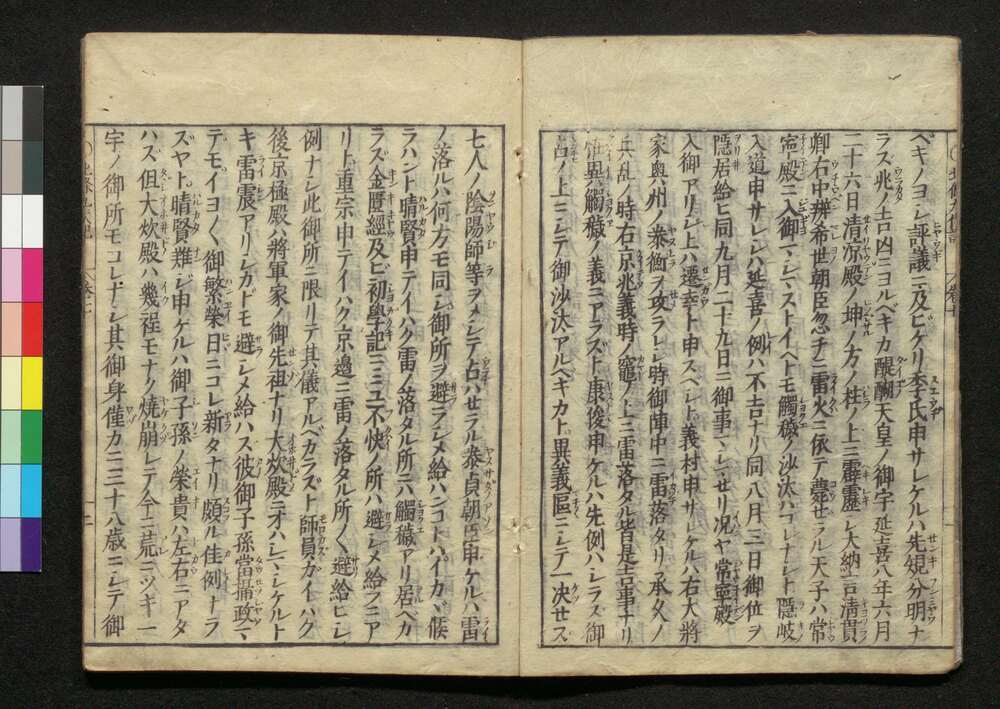 ベキノヨシ評議ニ及ビケリ季氏申サレケルハ先規分明ナ
ラズ兆ノ吉凶ニヨルベキカ醍醐天皇ノ御宇延喜八年六月
二十六日清涼殿ノ坤ノ方ノ柱ノ上ニ霹靂シ大納言清貫
卿右中辨希世朝臣忽チニ雷火ニ依テ薨セラル天子ハ常
寧殿ニ入御マシマストイヘトモ觸穢ノ沙汰ハコレナシト隱岐
入道申サレシハ延喜ノ例ハ不吉ナリ同八月二日御位ヲ
隱居給ヒ同九月二十九日ニ御事マシマセリ况ヤ常寧殿
入御アリシ上ハ遷幸ト申スベシト義村申サレケルハ右大將
家奥州ノ泰衡ヲ攻ラレシ時御陣中ニ雷落タリ承久ノ
兵乱ノ時右京兆義時ノ竈ノ上ニ雷落タル皆是吉事ナリ
恠異觸穢ノ義ニアラズト康俊申ケルハ先例ハシラズ御
占ノ上ニシテ御沙汰アルベキカト異義區ニシテ一决セズ
七人ノ陰陽師等ヲメシテ占ハセラル泰貞朝臣申ケルハ雷
ノ落ルハ何方モ同シ御所ヲ避ラシメ給ハンコトハイカヾ候
ラハント晴賢申テイハク雷ノ落タル所ニハ觸穢アリ居ベカ
ラズ金匱經及ビ初學記ニミユ不快ノ所ハ避シメ給フニア
リト重宗申テイハク京邉ニ雷ノ落タル所〱避給ヒシ
例ナシ此御所ニ限リテ其儀アルベカラズト師員ガイハク
後京極殿ハ將軍家ノ御先祖ナリ大炊殿ニオハシマシケルト
キ雷震アリシカドモ避シメ給ハス彼御子孫當攝政マ
テモイヨ〱御繁榮日ニコレ新タナリ頗ル佳例トラ
ズヤト晴賢難シ申ケルハ御子孫ノ榮貴ハ左右ニアタ
ハズ但大炊殿ハ幾程モナク燒崩レテ今ニ荒ニツキ一
宇ノ御所モコレナシ其御身僅カニ三十八歳ニシテ御